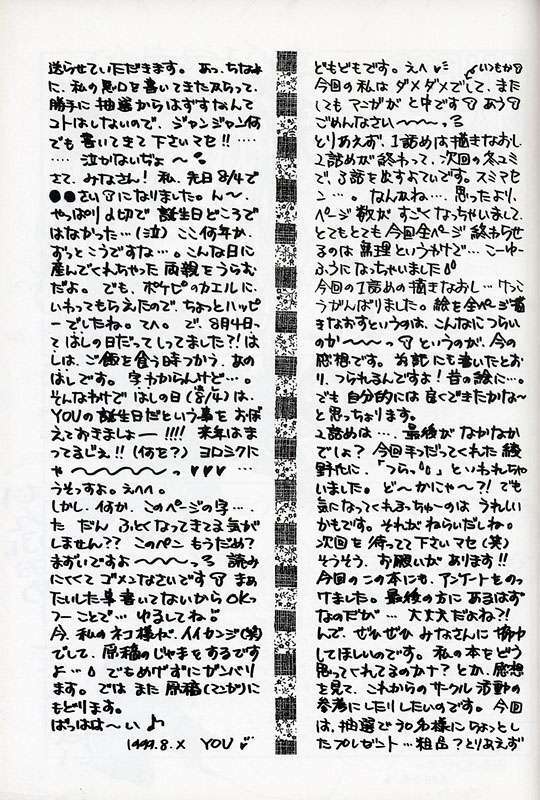 どもどもです。えへ いつもか
今回の私は ダメダメでして、また
しても マンガが と中です あう
ごめんなさい〜〜〜っ
とりあえず、1話めは描きなおし、
2話めが終わって、次回の冬コミ
で、3話を出すよていです。スミマセ
ン…。なんかね…、思ったより、
ページ数が すごくなっちゃいまして、
とてもとても 今回全ページ 終わらせ
るのは無理というわけで…こーゆー
ふうになっちゃいました
今回の1話めの描きなおし…けっこ
うがんばりました。絵を全ページ描
きなおすというのは、こんなにつらい
のか〜〜〜っ というのが、今の
感想です。 にも書いたとお
り、つられるんですよ！昔の絵に…。
でも 自分的には 良くできたかな〜
と思っちょります。
2話めは…、最後がなかなか
でしょ？ 今回手つだってくれた綾
野化に、「つらっ」といわれちゃ
いました。ど〜かにゃ〜?! でも
気になってくれるっちゅーのは うれしい
かもです。それがねらいだしね。
次回を 待ってて下さいマセ(笑)
そうそう、お願いがあります!!
今回のこの本にも、アンケートをのっ
けました。最後の方にあるはず
なのだが…大丈夫だよね?!
んで、ぜひぜひ みなさんに
してほしいのです。私の本をどう
思ってくれてるのかナ？とか、感想
を見て、これからのサークル活動の
参考にしたりしたいのです。今回
は、抽選で30名様に ちょっとし
たプレゼント…粗品？とりあえず
送らせていただきます。あっ、ちなみ
に、私の悪口を書いてきたからって、
勝手に抽選からはずすなんて
コトはしないので、ジャンジャン何
でも 書いてきて下さいマセ!! ……
…… 泣かないぢょ〜
さて、みなさん！私、先日8/4で
●●さいになりました。ん〜、
やっぱり〆切で 誕生日どころで
はなかった…(泣) ここ何年か、
ずっとこうですな…。こんな日に
産んでくれちゃった 両親をうらむ
だよ。でも、ポケピのカエルに、
いわってもらえたので、ちょっとハッピ
ーでしたね。てへ。で、8月4日っ
て はしの日だってしってました?! は
しは、ご飯を食う時つかう、あの
はしです。字わからんけど…。
そんなわけで はしの日(8/4)は、
YOUの誕生日だという事を おぼ
えておきましょー!!!! 来年はま
ってるじぇ!!(何を？) ヨロシクに
ゃ〜〜〜〜〜っ♥♥♥…
うそっすよ。えへへ。
しかし、何か、このページの字…、
た だん ふとくなってきてる気が
しません？？ このペン もうだめ？
まずいですよ〜〜〜っ 読み
にくくて ゴメンなさいです まぁ
たいした事書いてないからOKっ
つーことで… ゆるしてね
今、私のネコ様が、イイカンジ(笑)
でして、原稿のじゃまをするです
よ… でもめげずにガンバリ
ます。では また 原稿(マンガ)に
もどります。
ばっはは〜い♪
1999.8.X YOU